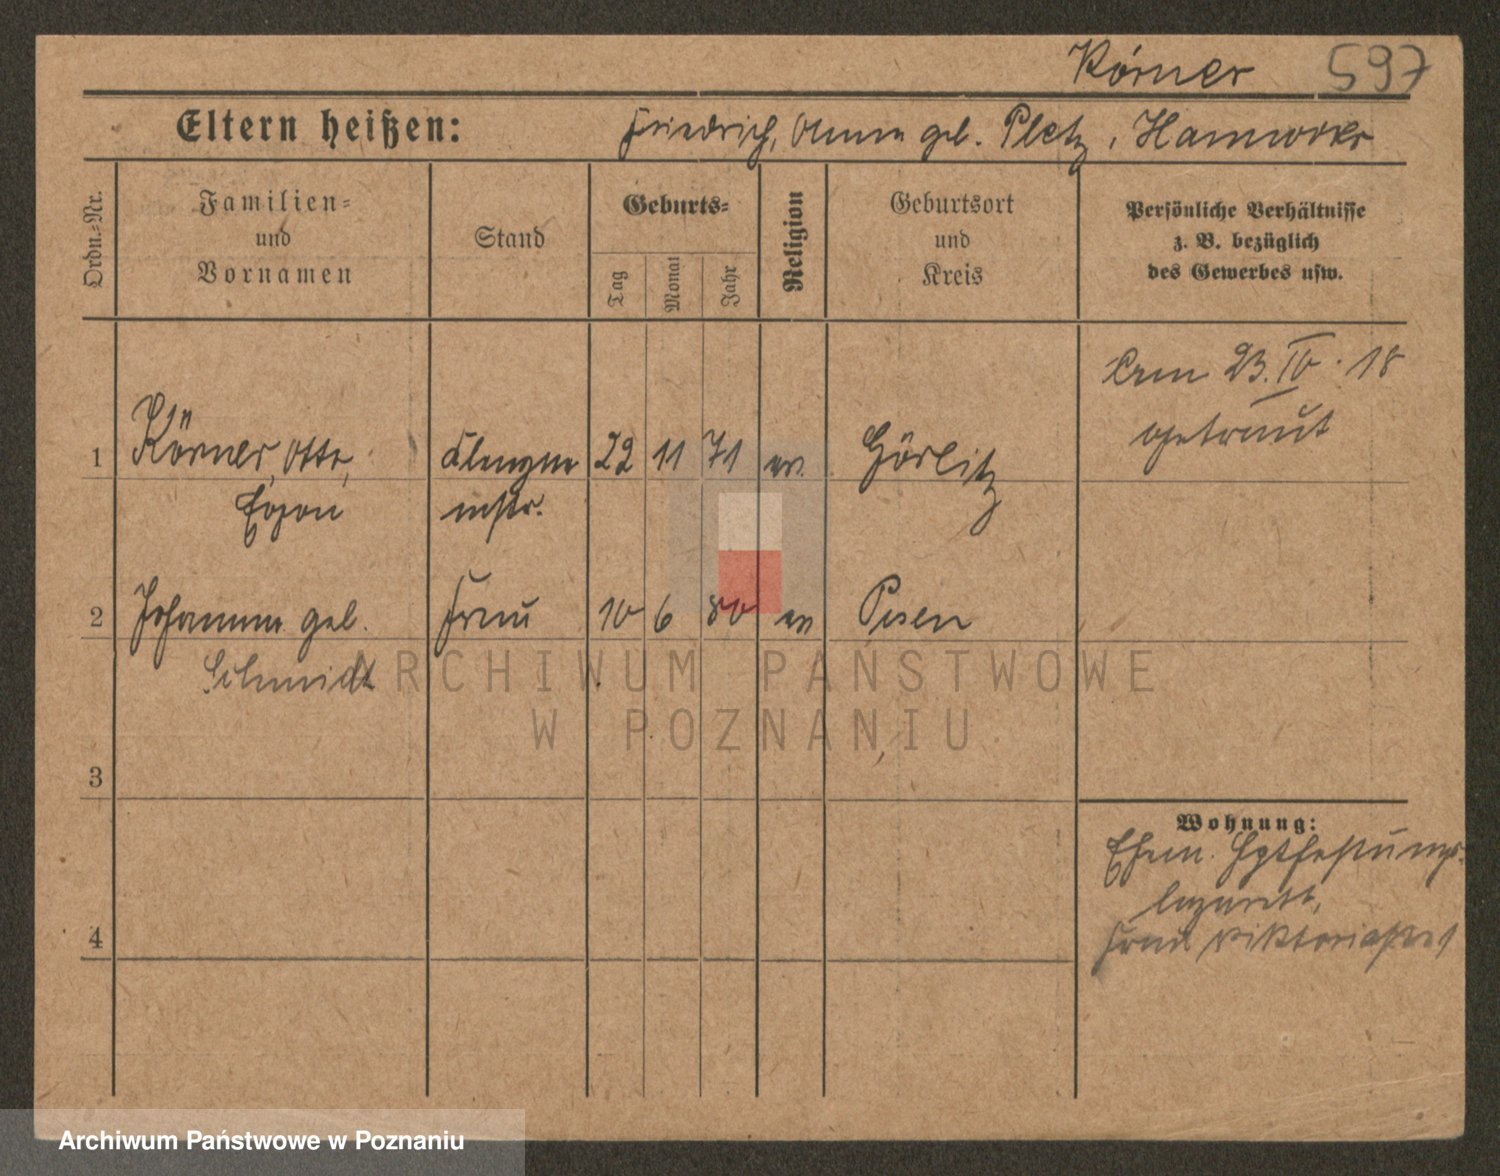 Körner 597
Eltern heißen: Friedrich, Anna geb. Pletz,
Ordn.-Nr.
Familien=
und
Vornamen
Stand
Geburts=
Tag
Monat
Jahr
Religion
Geburtsort
und
Kreis
Persönliche Verhältnisse
z. B. bezüglich
des Gewerbes usw.
Am 23. IV. 18
getraut
1 Körner, Otto, Klempne 22 11 71 ev. Görlitz
Egon mstr.
2 Johanna geb. Frau 10 6 80 ev Posen
Schmidt
ARCHIWUM PAŃSTWOWE
W POZNANIU
3
Wohnung:
Ehem. Festungs-
lazarett,
Frau Viktoriastr
4
Archiwum Państwowe w Poznaniu